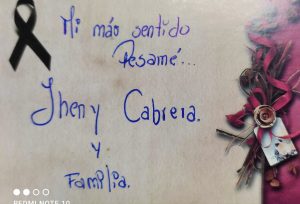 Mi máo sentido
Pesamé...
Jheny Cabrera.
y
Familia.
REDMI NOTE 10